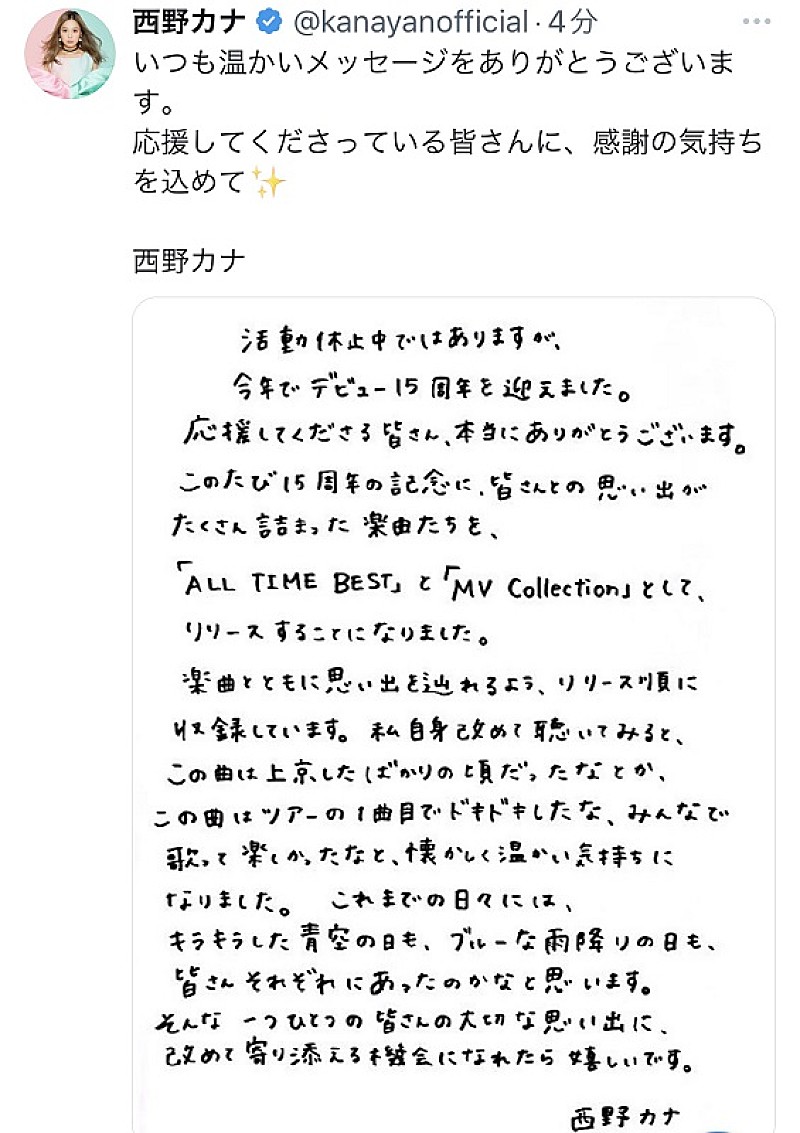 西野カナ @kanayanofficial · 4分
いつも温かいメッセージをありがとうございま
す。
応援してくださっている皆さんに、感謝の気持ち
を込めて✨
西野カナ
活動休止中ではありますが、
今年でデビュー15周年を迎えました。
応援してくださる皆さん、本当にありがとうございます。
このたび15周年の記念に、皆さんとの思い出が
たくさん詰まった楽曲たちを、
「ALL TIME BEST」と「MV Collection」として、
リリースすることになりました。
楽曲とともに思い出を辿れるよう、リリース順に
収録しています。私自身改めて聴いてみると、
この曲は上京したばかりの頃だったなとか、
この曲はツアーの1曲目でドキドキしたな、みんなで
歌って楽しかったなと、懐かしく温かい気持ちに
なりました。 これまでの日々には、
キラキラした青空の日も、ブルーな雨降りの日も、
皆さんそれぞれにあったのかなと思います。
そんな一つひとつの皆さんの大切な思い出に、
改めて寄り添える機会になれたら嬉しいです。
西野カナ